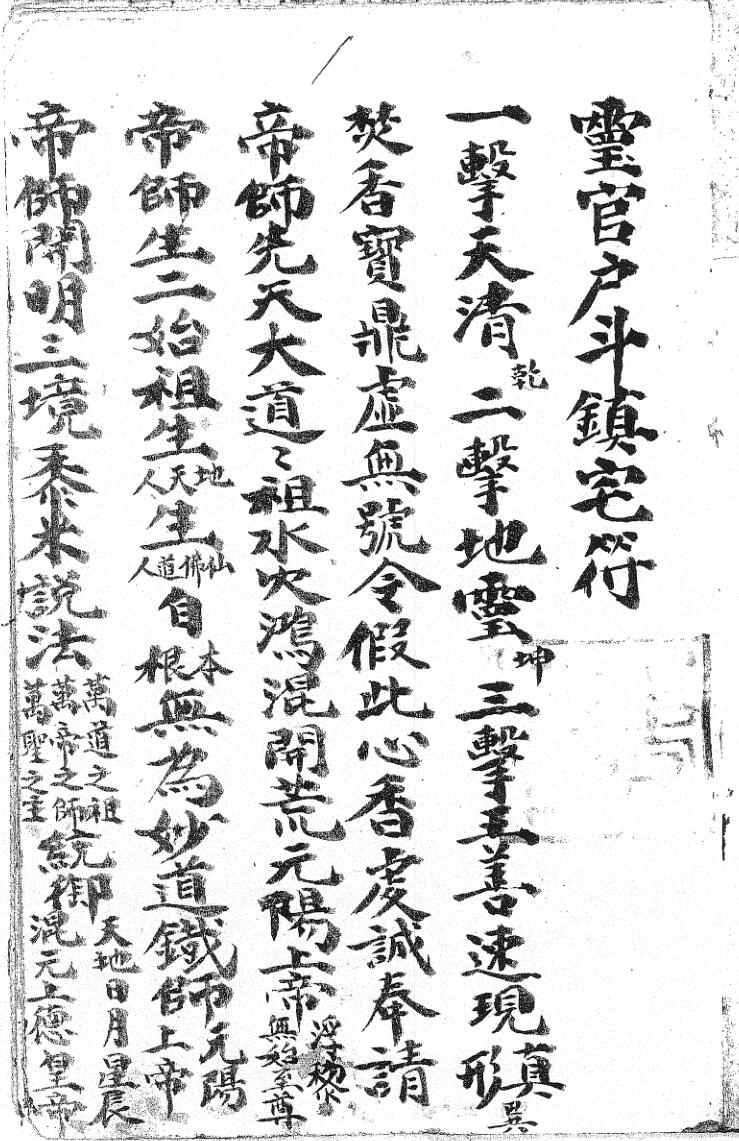 靈官戶斗鎮宅符
一擊天清乾二擊地靈坤三擊五善速現真形巽
焚香寶鼎虛無號令假此心香虔誠奉請
帝師先天大道〻祖水火鴻混開荒元陽上帝浮黎無始至尊
帝師生二始祖生地天人生仙佛道人自本根無為妙道鐵師元陽上帝
帝師開明三境黍米說法萬道之祖萬帝之師萬聖之主統御天地日月星辰混元上德皇帝